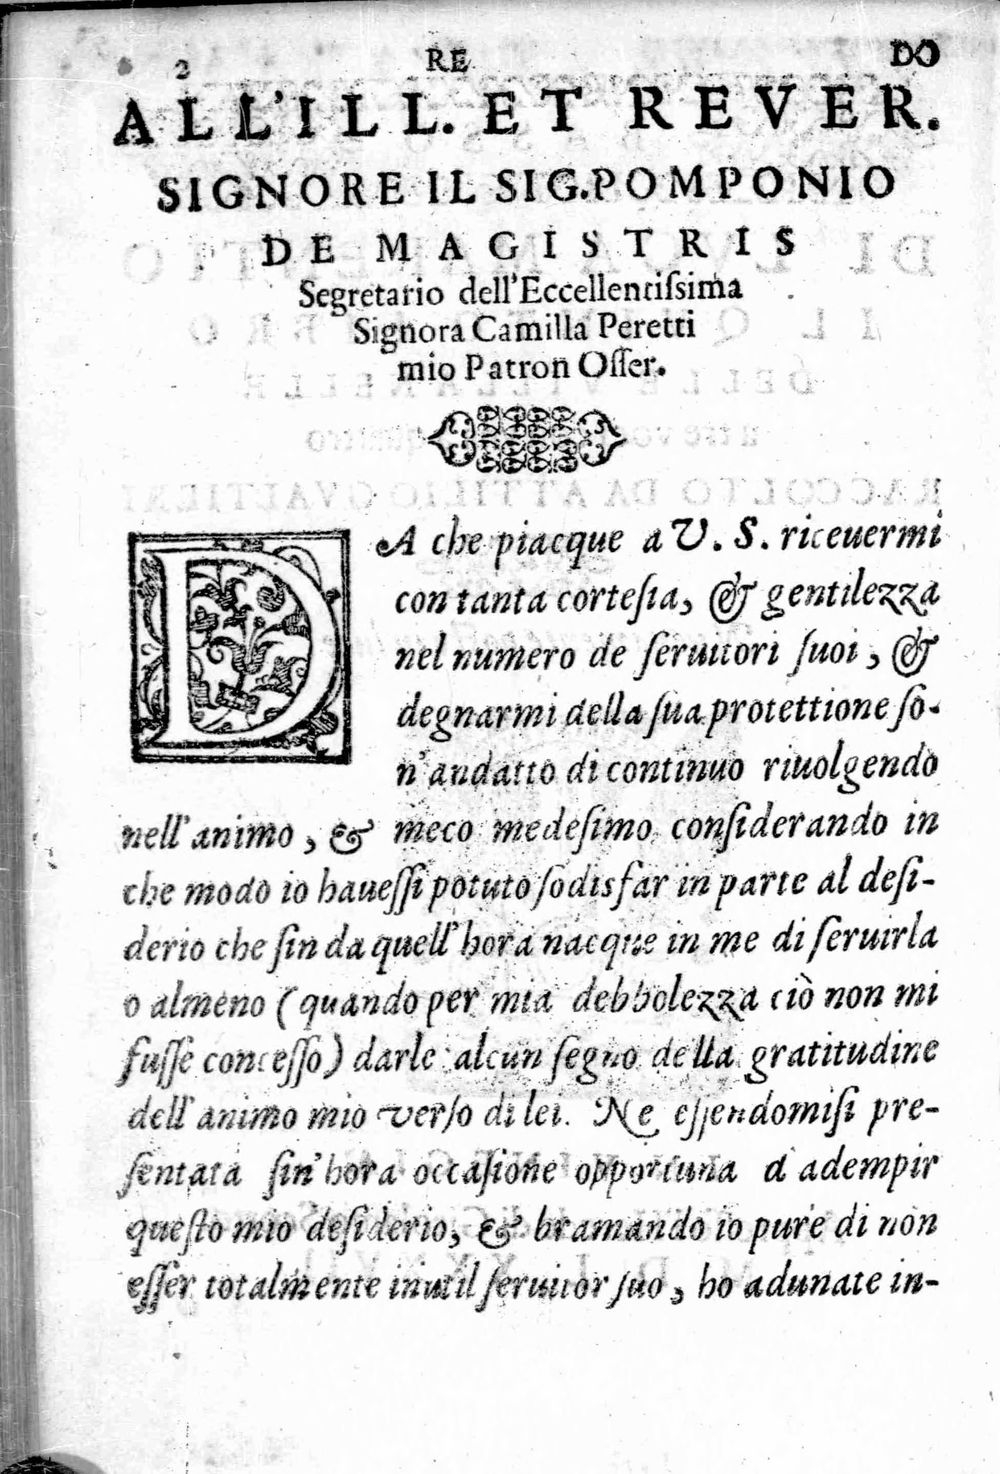 2 RE DO
ALL'ILL. ET REVER.
SIGNORE IL SIG.POMPONIO
DE MAGISTRIS
Segretario dell'Eccellentiſsima
Signora Camilla Peretti
mio Patron Oſſer.
DA che piacque a V. S. riceuermi
con tanta corteſia, & gentilezza
nel numero de ſeruitori ſuoi, &
degnarmi della ſua protettione ſo-
n'andatto di continuo riuolgendo
nell'animo, & meco medeſimo conſiderando in
che modo io haueſſi potuto ſodisfar in parte al deſi-
derio che ſin da quell'hora nacque in me di ſeruirla
o almeno (quando per mia debbolezza ciò non mi
fuſſe conceſſo) darle alcun ſegno della gratitudine
dell'animo mio verſo di lei. Ne eſſendomiſi pre-
ſentata ſin'hora occaſione opportuna d'adempir
queſto mio deſiderio, & bramando io pure di non
eſſer totalmente inutil ſeruitor ſuo, ho adunate in-